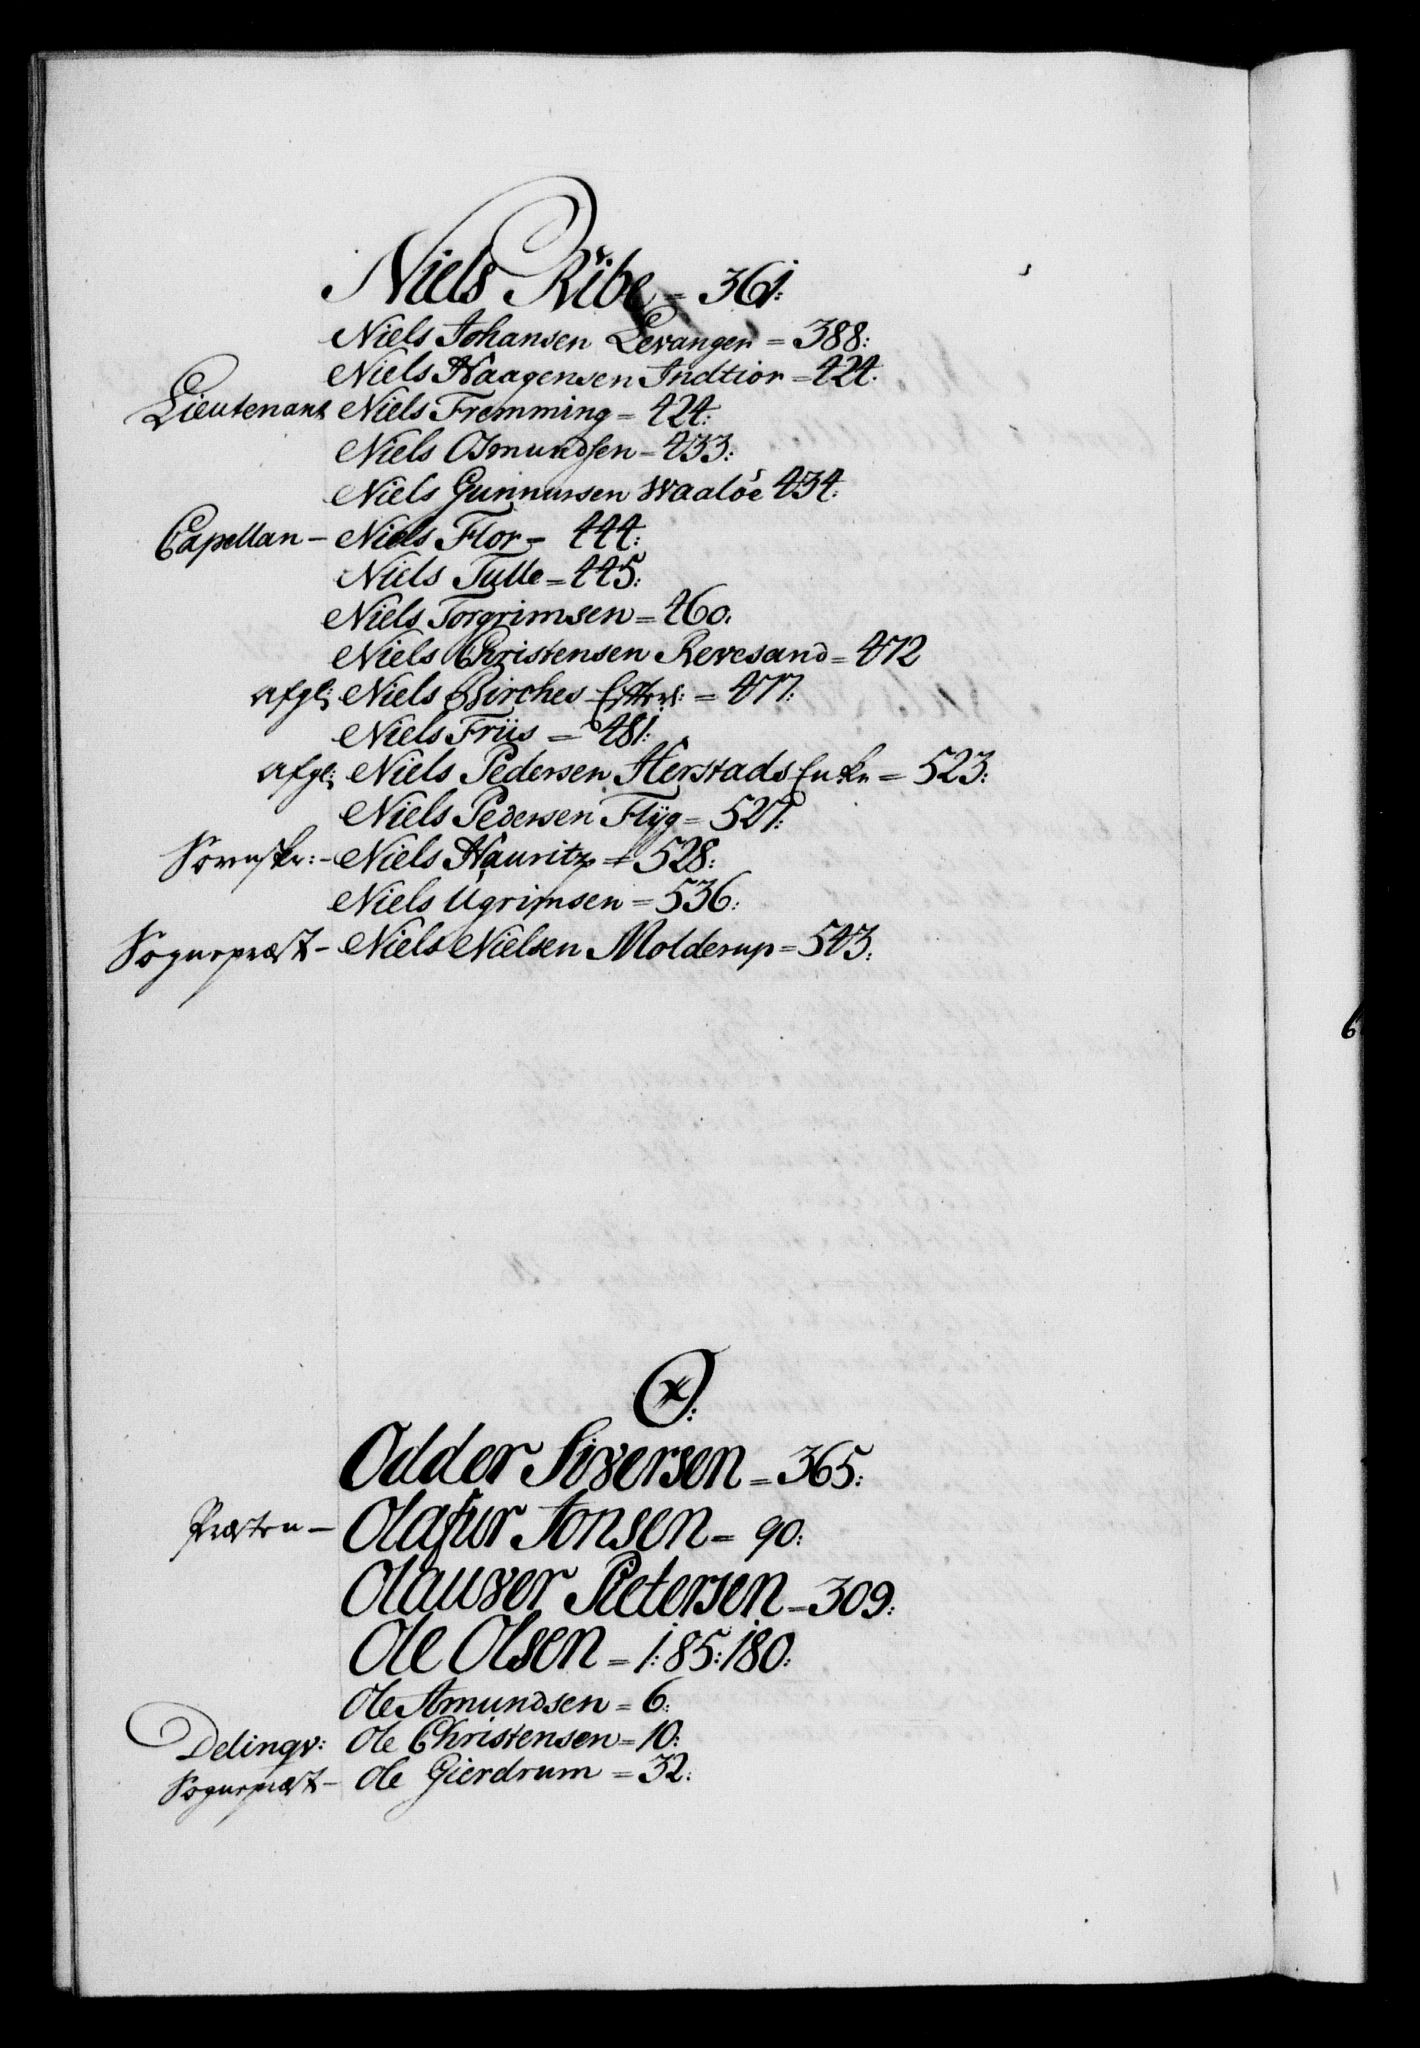 Niels Ribe = 361:
Niels Johansen Levanger = 388:
Niels Haagensen Indtior = 424.
Lieutenant Niels Fremming = 424:
Niels Osmundsen = 433:
Niels Gunnarsen Waaløe 434:
Capellan – Niels Flor = 444:
Niels Tulle = 445:
Niels Torgrimsen = 460:
Niels Christensen Revesand = 472
afgl: Niels Birches Efterl: = 477:
Niels Friis = 481:
afgl: Niels Pedersen Herstads Enke = 523:
Niels Pedersen Flÿg = 527:
Sorenskr: – Niels Hauritz = 528:
Niels Ugrimsen = 536:
Sognepræst – Niels Nielsen Molderup = 543:
O:
Odder Siversen = 365:
Præsten – Olafur Jonsen = 90:
Olauver Pietersen = 309:
Ole Olsen = 1: 85: 180:
Ole Amundsen = 6:
Delinqv: Ole Christensen = 10:
Sognepræst – Ole Gierdrum = 32: